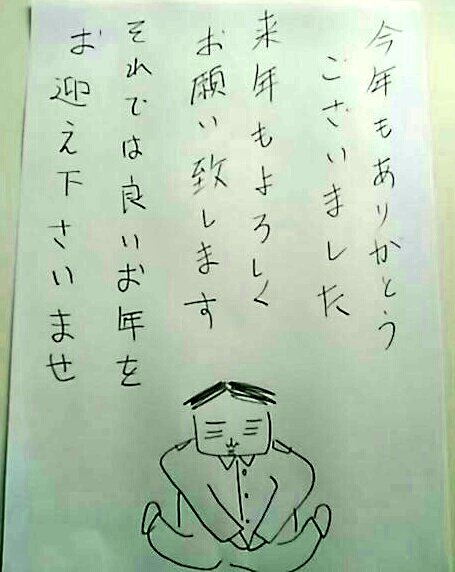 今年もありがとう
ございました
来年もよろしく
お願い致します
それでは良いお年を
お迎え下さいませ